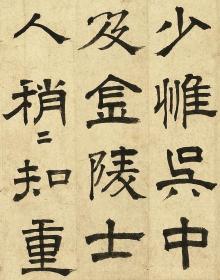 少惟吳中
及金陵士
人稍〻知重